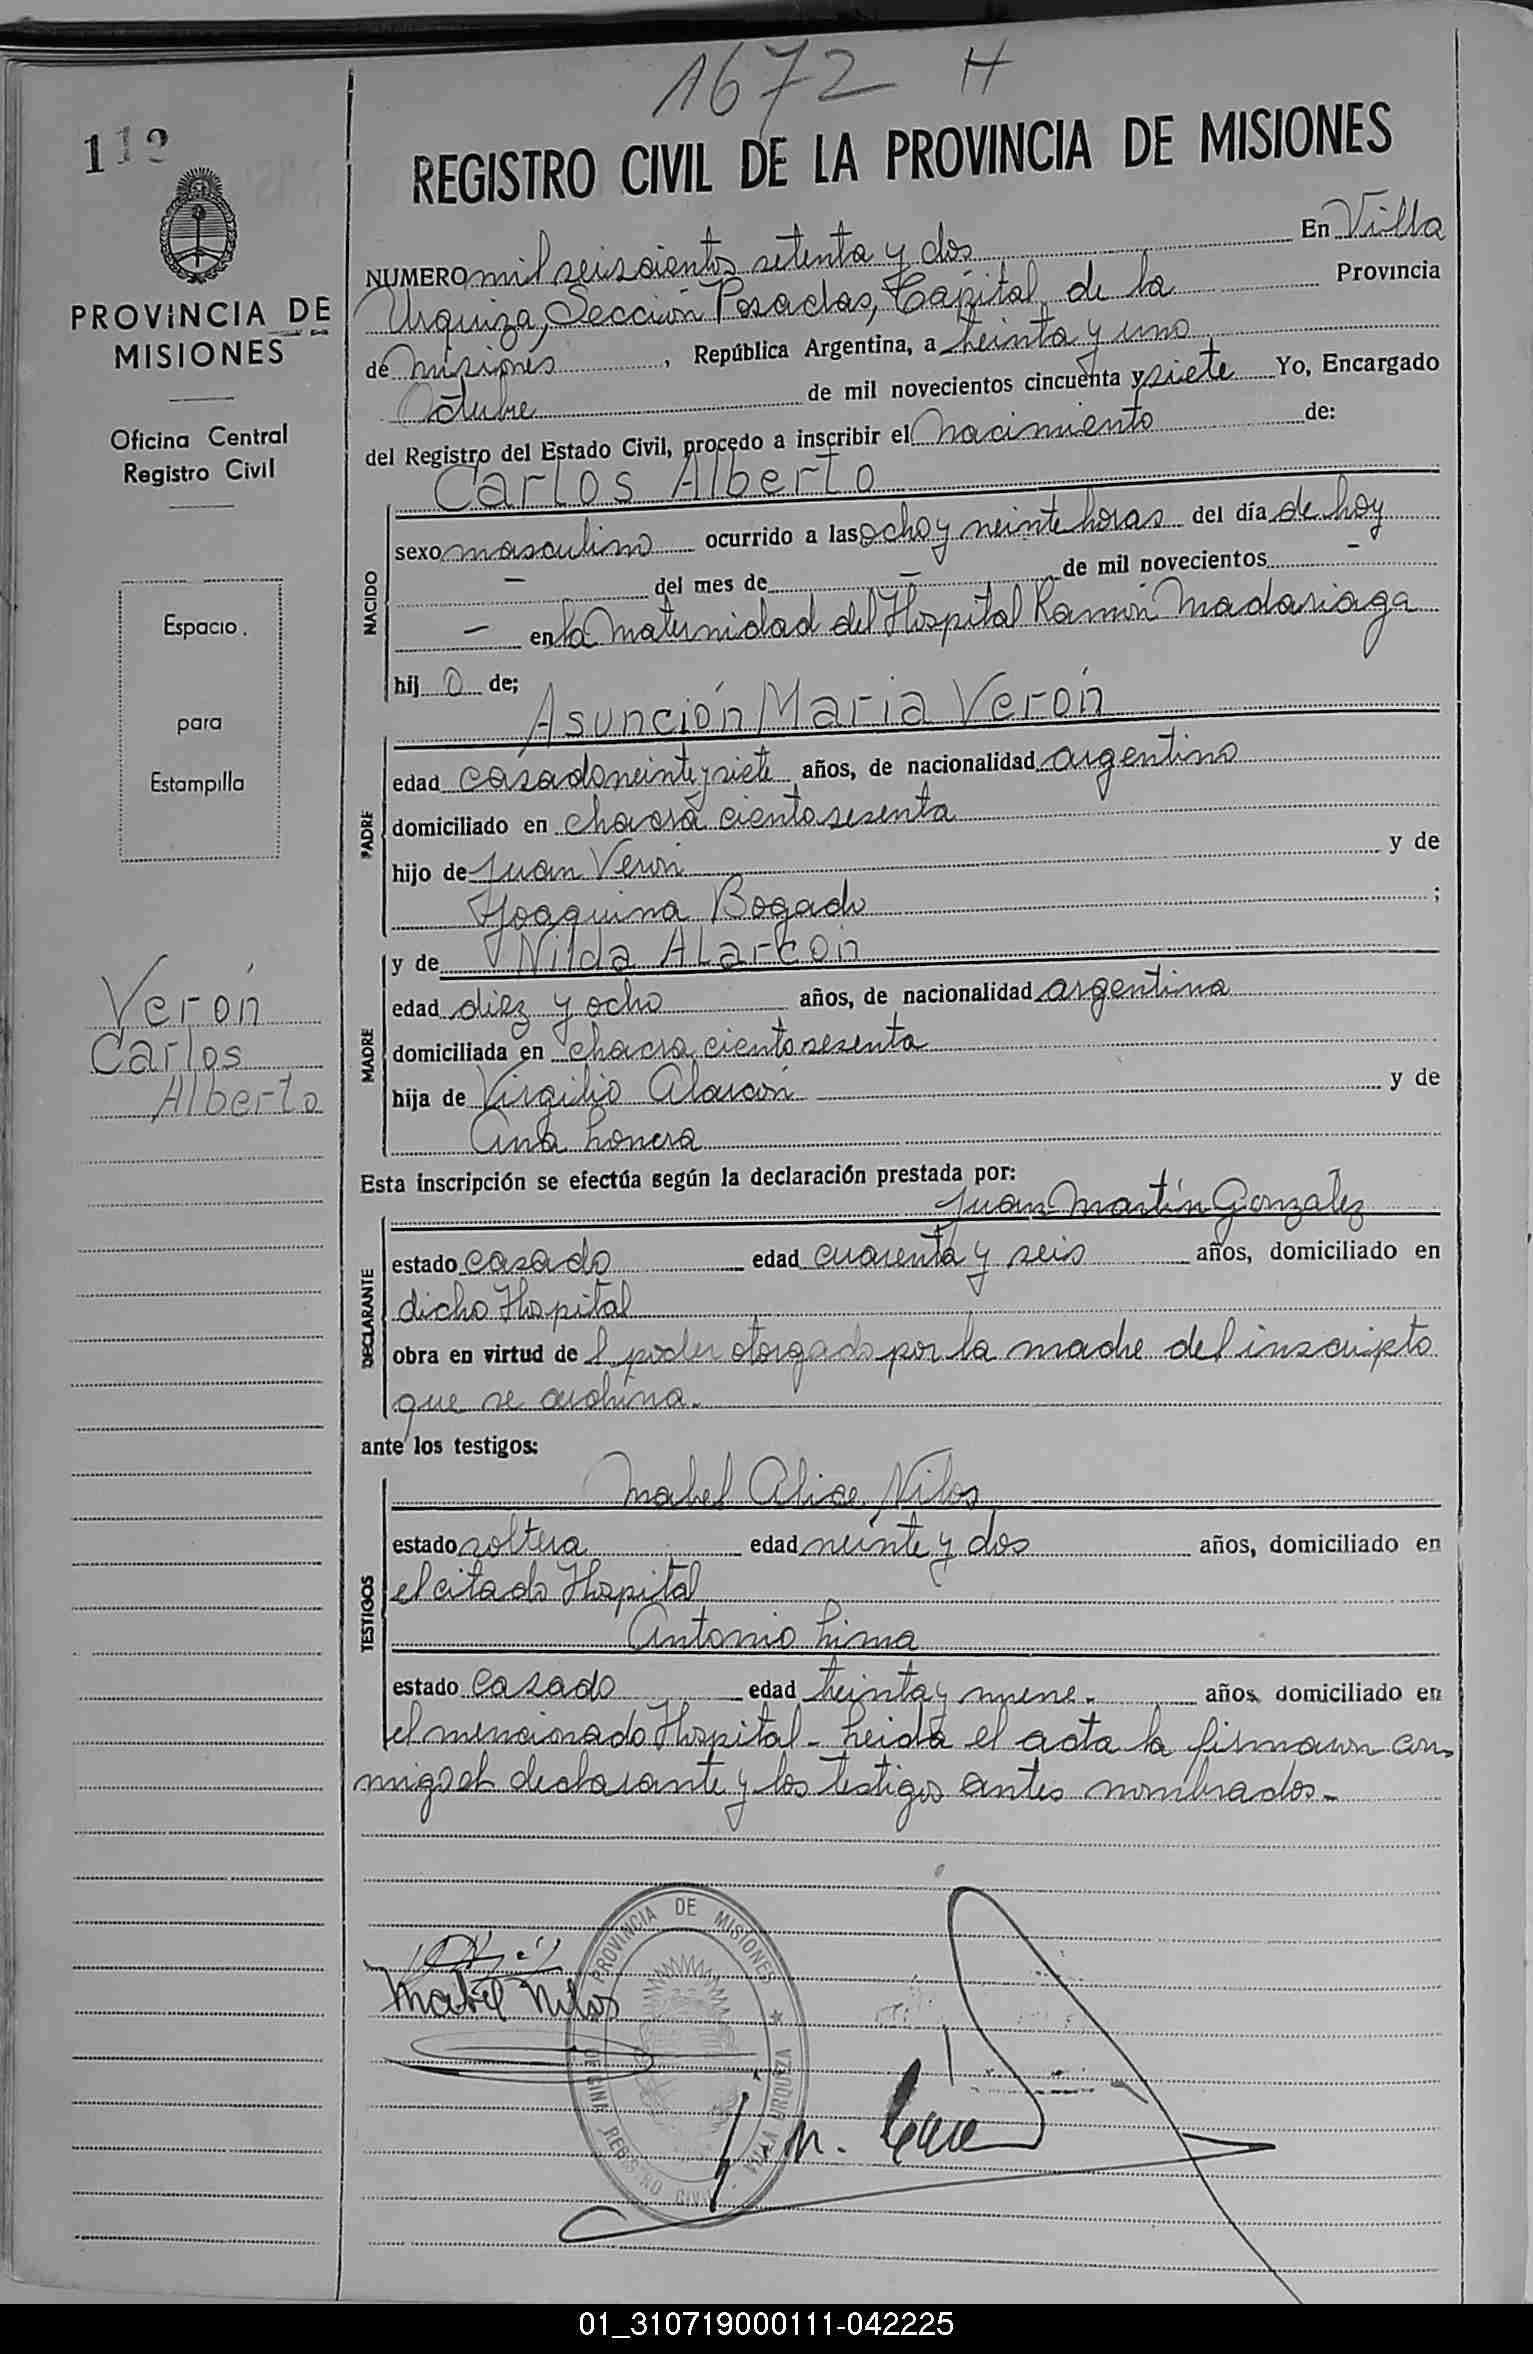 1672 H
112
REGISTRO CIVIL DE LA PROVINCIA DE MISIONES
PROVINCIA DE
MISIONES
Oficina Central
Registro Civil
Espacio
para
Estampilla
Verón
Carlos
Alberto
NUMERO mil seiscientos setenta y dos En Villa
Urquiza, Sección Posadas, Capital de la Provincia
de Misiones, República Argentina, a treinta y uno
Octubre de mil novecientos cincuenta y siete Yo, Encargado
del Registro del Estado Civil, procedo a inscribir el nacimiento de:
Carlos Alberto
NACIDO
sexo masculino ocurrido a las ocho y veinte horas del día de hoy
- del mes de - de mil novecientos -
- en la Maternidad del Hospital Ramón Madariaga
hij o de;
Asunción Maria Verón
PADRE
edad casado veinte y siete años, de nacionalidad argentino
domiciliado en chacra ciento sesenta
hijo de Juan Verón y de
Joaquina Bogado ;
y de Nilda Alarcón
MADRE
edad diez y ocho años, de nacionalidad argentina
domiciliada en chacra ciento sesenta
hija de Virgilio Alarcón y de
Ana Lonera
Esta inscripción se efectúa según la declaración prestada por:
Juan Martín Gonzalez
DECLARANTE
estado casado edad cuarenta y seis años, domiciliado en
dicho Hospital
obra en virtud de l poder otorgado por la madre del inscripto
que se archiva.
ante los testigos:
Mabel Alice Nilos
TESTIGOS
estado soltera edad veinte y dos años, domiciliado en
el citado Hospital
Antonio Lima
estado casado edad treinta y nueve.- años, domiciliado en
el mencionado Hospital - Leida el acta la firmaron con-
migo el declarante y los testigos antes nombrados.-
PROVINCIA DE MISIONES
OFICINA REGISTRO CIVIL VILLA URQUIZA
Mabel Nilos
01_310719000111-042225